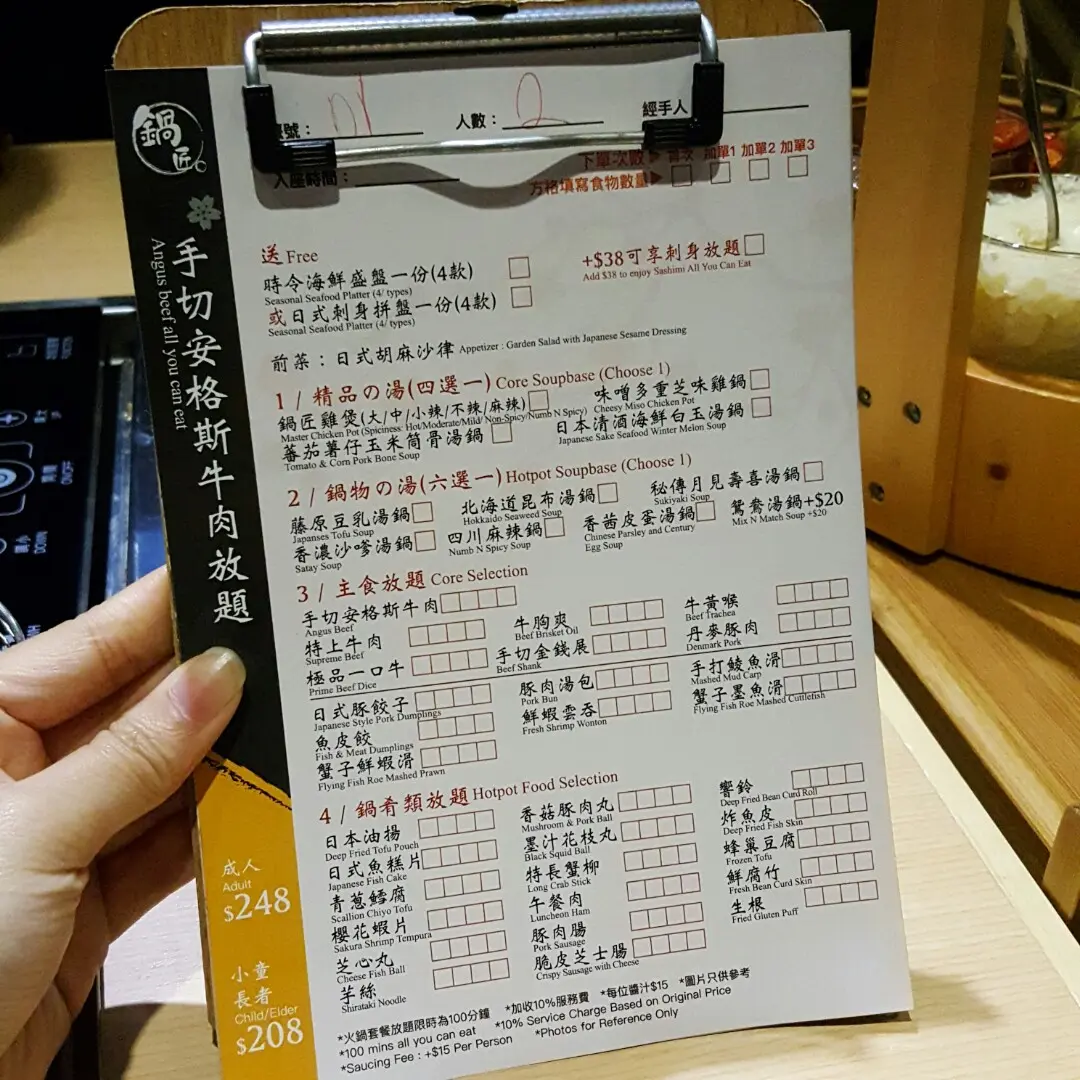 鍋匠
手切安格斯牛肉放題
Angus beef all you can eat
成人
Adult
$248
小童
長者
Child/Elder
$208
號：
人數： 2
經手人
入座時間：
下單次數▶ 首次 加單1 加單2 加單3
方格填寫食物數量▶
送 Free
時令海鮮盛盤一份(4款)
Seasonal Seafood Platter (4/ types)
或日式刺身拼盤一份(4款)
Seasonal Seafood Platter (4/ types)
+$38可享刺身放題
Add $38 to enjoy Sashimi All You Can Eat
前菜：日式胡麻沙律 Appetizer : Garden Salad with Japanese Sesame Dressing
1 / 精品の湯(四選一) Core Soupbase (Choose 1)
鍋匠雞煲(大/中/小辣/不辣/麻辣)
Master Chicken Pot (Spiciness: Hot/Moderate/Mild/ Non-Spicy/Numb N Spicy)
味噌多重芝味雞鍋
Cheesy Miso Chicken Pot
蕃茄薯仔玉米筒骨湯鍋
Tomato & Corn Pork Bone Soup
日本清酒海鮮白玉湯鍋
Japanese Sake Seafood Winter Melon Soup
2 / 鍋物の湯(六選一) Hotpot Soupbase (Choose 1)
藤原豆乳湯鍋
Japanses Tofu Soup
北海道昆布湯鍋
Hokkaido Seaweed Soup
秘傳月見壽喜湯鍋
Sukiyaki Soup
香濃沙嗲湯鍋
Satay Soup
四川麻辣鍋
Numb N Spicy Soup
香茜皮蛋湯鍋
Chinese Parsley and Century
Egg Soup
鴛鴦湯鍋+$20
Mix N Match Soup +$20
3 / 主食放題 Core Selection
手切安格斯牛肉
Angus Beef
牛胸爽
Beef Brisket Oil
牛黃喉
Beef Trachea
特上牛肉
Supreme Beef
手切金錢展
Beef Shank
丹麥豚肉
Denmark Pork
極品一口牛
Prime Beef Dice
日式豚餃子
Japanese Style Pork Dumplings
豚肉湯包
Pork Bun
手打鯪魚滑
Mashed Mud Carp
魚皮餃
Fish & Meat Dumplings
鮮蝦雲吞
Fresh Shrimp Wonton
蟹子墨魚滑
Flying Fish Roe Mashed Cuttlefish
蟹子鮮蝦滑
Flying Fish Roe Mashed Prawn
4 / 鍋肴類放題 Hotpot Food Selection
日本油揚
Deep Fried Tofu Pouch
香菇豚肉丸
Mushroom & Pork Ball
響鈴
Deep Fried Bean Curd Roll
日式魚糕片
Japanese Fish Cake
墨汁花枝丸
Black Squid Ball
炸魚皮
Deep Fried Fish Skin
青蔥鱈腐
Scallion Chiyo Tofu
特長蟹柳
Long Crab Stick
蜂巢豆腐
Frozen Tofu
櫻花蝦片
Sakura Shrimp Tempura
午餐肉
Luncheon Ham
鮮腐竹
Fresh Bean Curd Skin
芝心丸
Cheese Fish Ball
豚肉腸
Pork Sausage
生根
Fried Gluten Puff
芋絲
Shirataki Noodle
脆皮芝士腸
Crispy Sausage with Cheese
*火鍋套餐放題限時為100分鐘 *加收10%服務費 *每位醬汁$15 *圖片只供參考
*100 mins all you can eat *10% Service Charge Based on Original Price
*Saucing Fee : +$15 Per Person *Photos for Reference Only